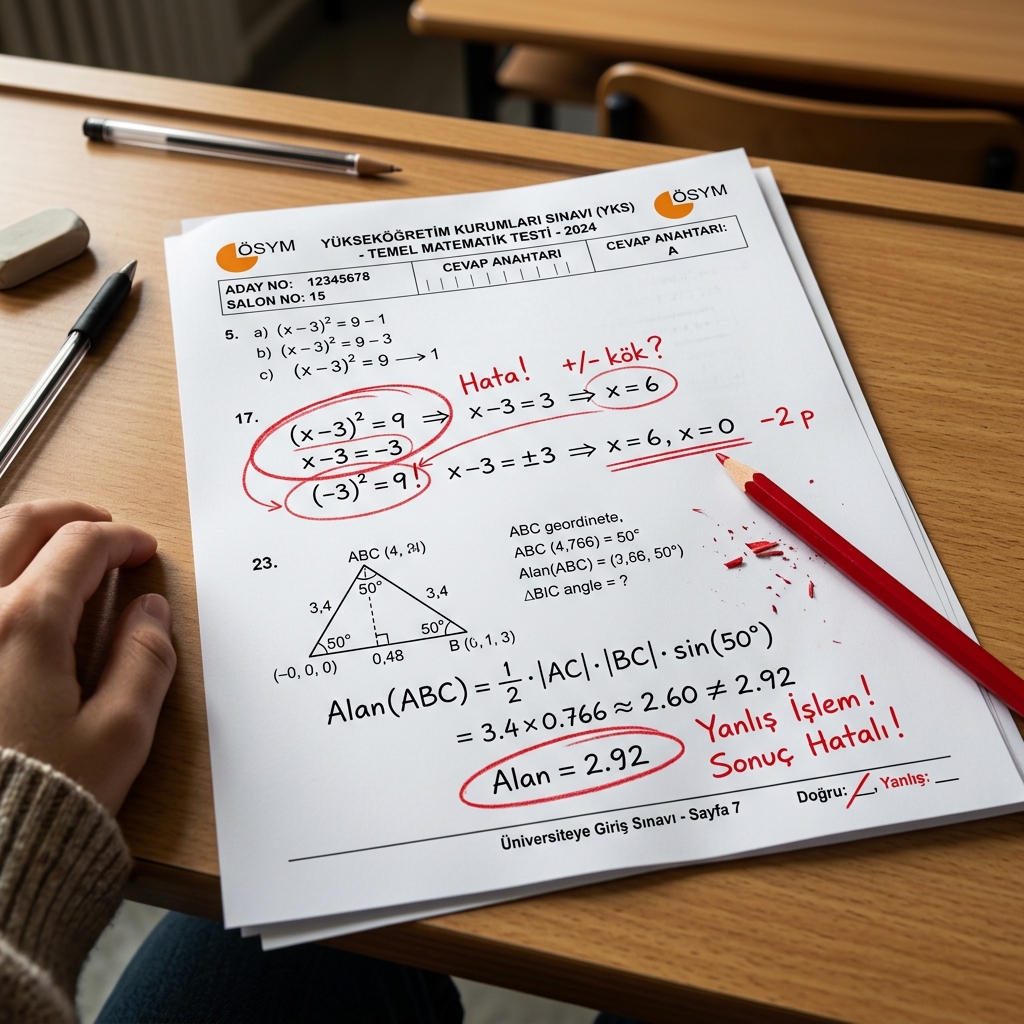 ÖSYM
YÜKSEKÖĞRETİM KURUMLARI SINAVI (YKS)
- TEMEL MATEMATİK TESTİ - 2024
ÖSYM
ADAY NO: 12345678
SALON NO: 15
CEVAP ANAHTARI
CEVAP ANAHTARI:
A
5. a) (x – 3)² = 9 – 1
b) (x – 3)² = 9 – 3
c) (x – 3)² = 9 → 1
Hata! +/- kök?
17. (x – 3)² = 9 ⇒ x – 3 = 3 ⇒ x = 6
x – 3 = –3
(–3)² = 9! x – 3 = ±3 ⇒ x = 6, x = 0 -2 p
23.
ABC (4,
50°
3,4
3,4
50°
50°
(–0, 0, 0)
0,48
B 1, 3)
ABC geordinete,
ABC (4,766) = 50°
Alan(ABC) = (3,66, 50°)
△BIC angle = ?
Alan(ABC) = 1/2 · |AC| · |BC| · sin(50°)
= 3.4 × 0.766 ≈ 2.60 ≠ 2.92
Alan = 2.92
Yanlış İşlem!
Sonuç Hatalı!
Doğru: __, Yanlış: __
Üniversiteye Giriş Sınavı - Sayfa 7